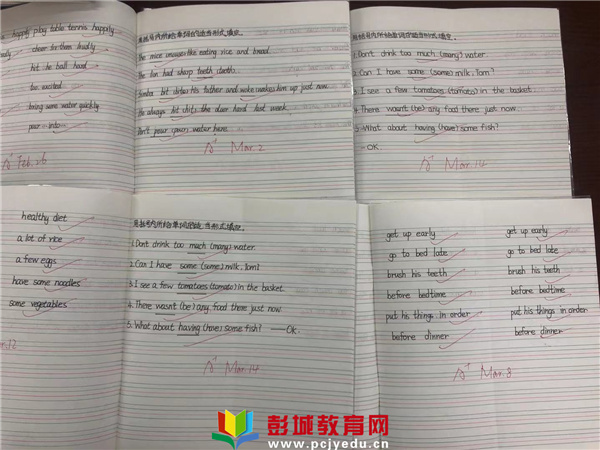 happily play table tennis happily
cheer for them loudly
hit his ball hard
be excited
bring some water quickly
pour into
A+ Feb. 26
用括号内所给单词的适当形式填空。
The mice mice like eating rice and bread.
The lion had sharp teeth (tooth).
his father and woke him up just now.
the door hard last week.
Don't pour water here.
A+ Mar. 2
用括号内所给单词的适当形式填空。
1. Don't drink too much (many) water.
2. Can I have some (some) milk, Tom?
3. I see a few tomatoes (tomato) in the basket.
4. There wasn't (be) any food there just now.
5. What about having (have) some fish?
- OK.
A+ Mar. 14
healthy diet
a lot of rice
a few eggs
have some noodles
some vegetables
用括号内所给单词的适当形式填空。
1. Don't drink too much (many) water.
2. Can I have some (some) milk, Tom?
3. I see a few tomatoes (tomato) in the basket.
4. There wasn't (be) any food there just now.
5. What about having (have) some fish? ——OK.
A+ Mar. 14
get up early get up early
go to bed late go to bed late
brush his teeth brush his teeth
before bedtime before bedtime
put his things in order put his things in order
before dinner before dinner
A+ Mar. 8
彭城教育网
www.pcjyedu.cn